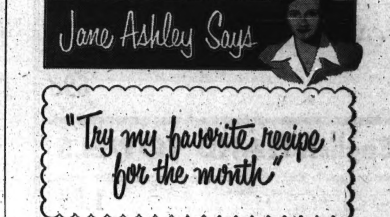 Jane Ashley Says
"Try my favorite recipe
for the month"